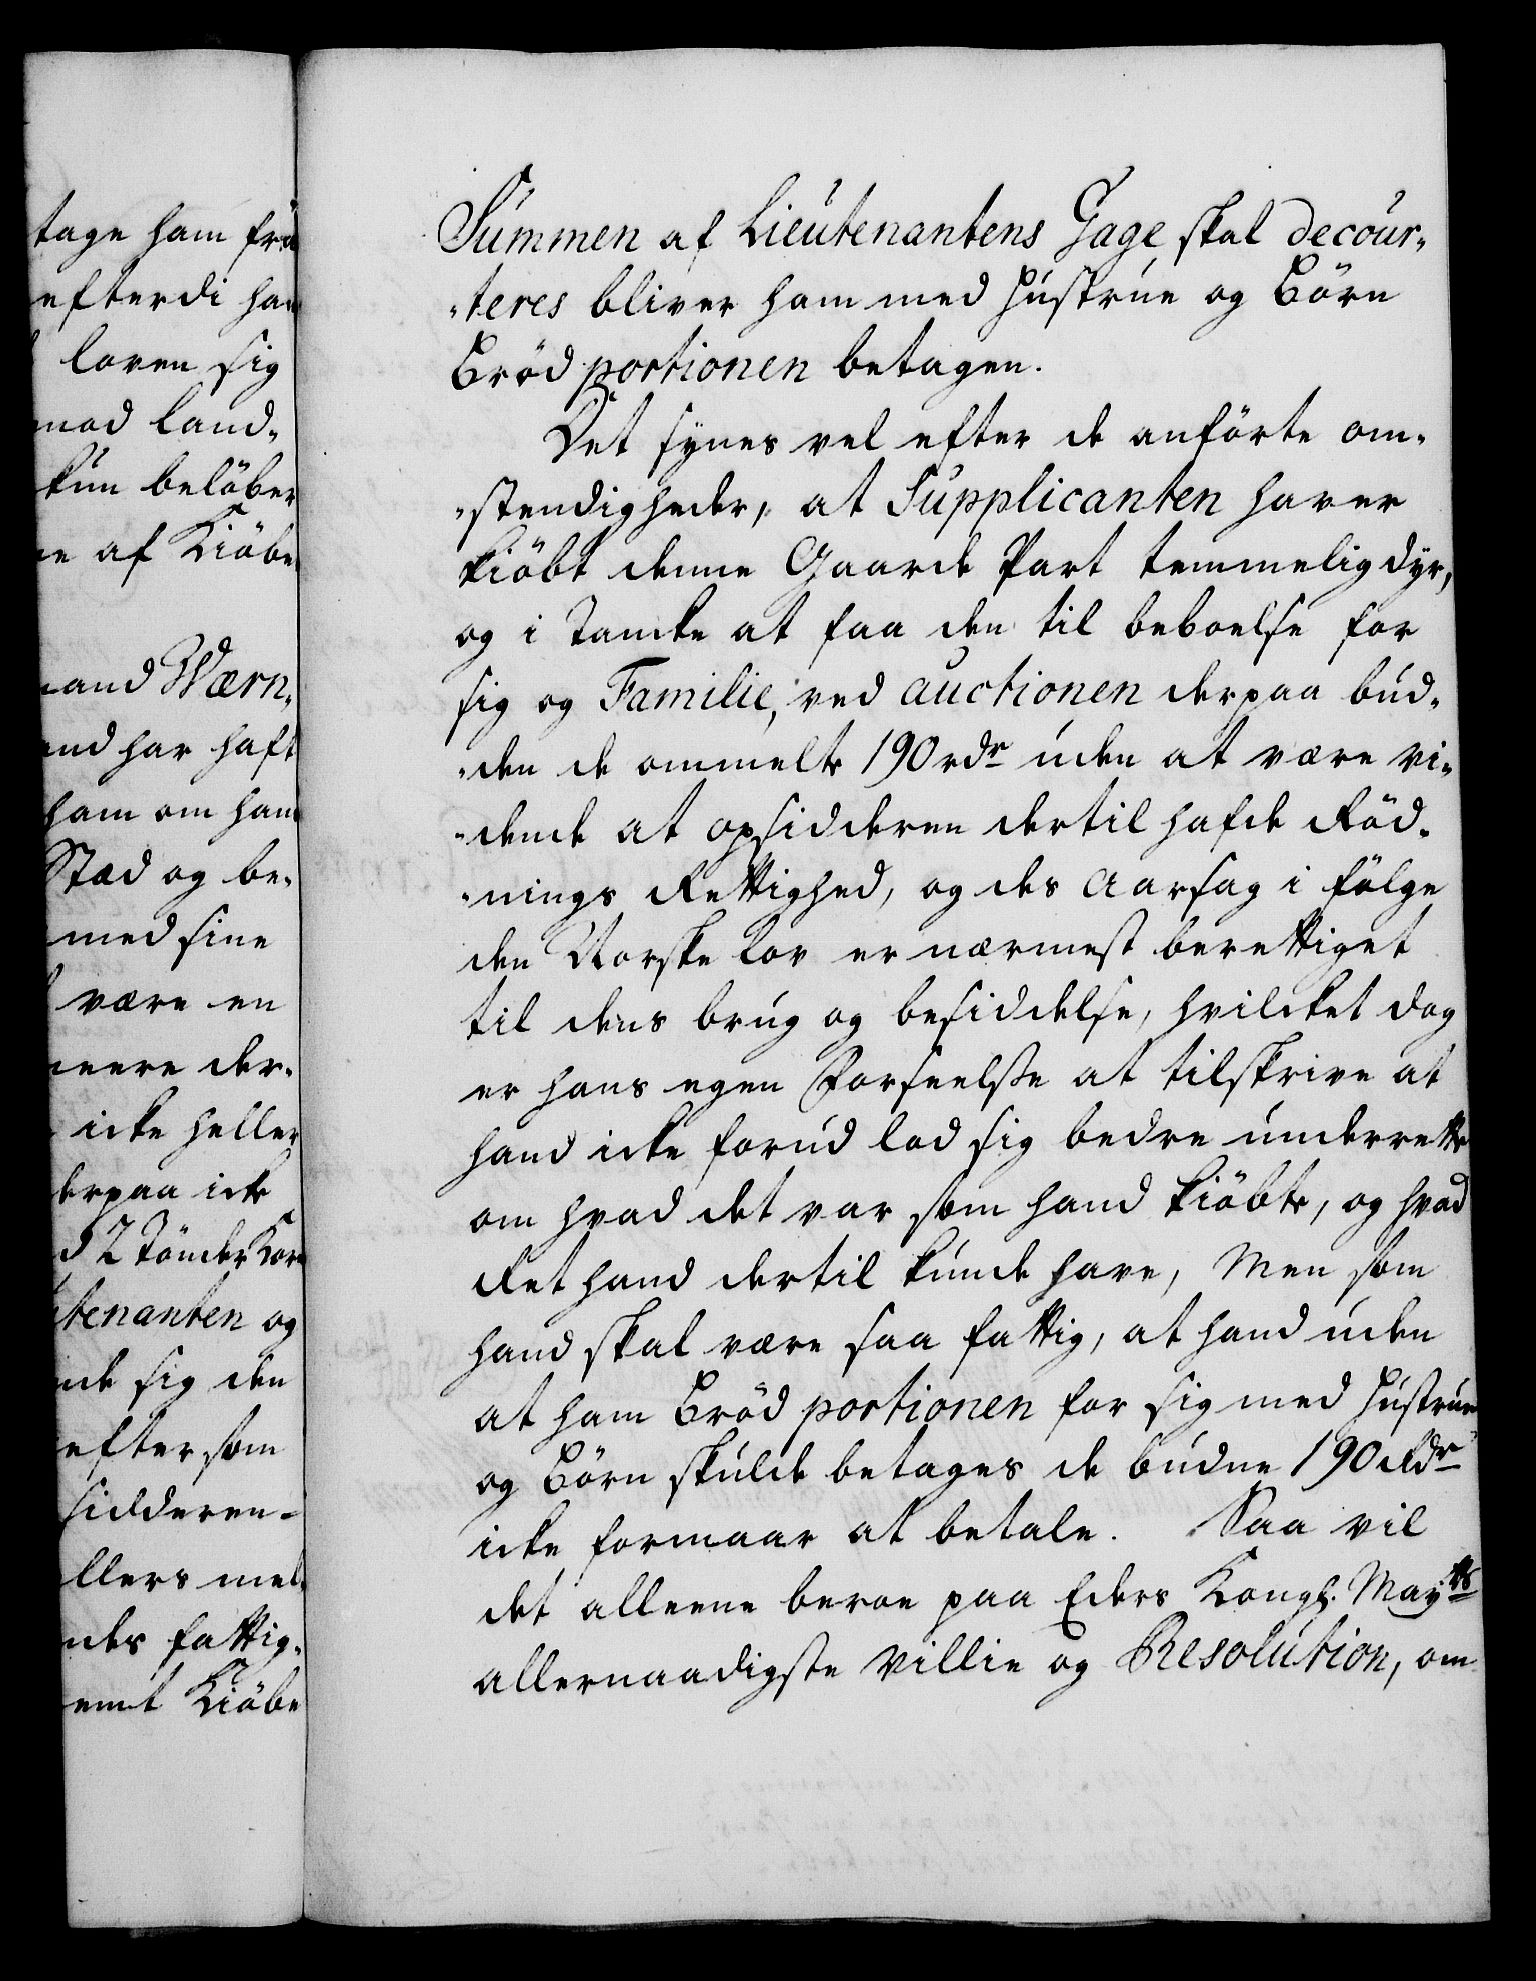 tage ham fra
efterdi han
loven sig
mod land-
kun beløber
af Kiöbe
Wærn-
har haft
ham om hans
Stæd og be-
med sine
være en
der-
icke heller
derpaa icke
2 Tönder Korn
tenanten og
sig den
eftersom
sidderen-
llers mel-
ndes fattig-
emt Kiöbe
Summen af Lieutenantens Gage skal decour-
-teres bliver ham med Hustrue og Börn
Bröd portionen betagen.
Det synes vel efter de anförte om-
-stendigheder, at Supplicanten haver
kiöbt denne Gaarde Part temmelig dyr,
og i Tancke at faa den til beboelse for
sig og Familie, ved auctionen derpaa bud-
-den de ommelte 190 rdr uden at være vi-
-dende at opsidderen dertil hafde Röd-
-nings Rettighed, og des Aarsag i fölge
den Norske Lov er nærmest berettiget
til dens brug og besiddelse, hvilcket dog
er hans egen Forseelsse at tilskrive at
hand icke forud lod sig bedre underrette
om hvad det var som hand kiöbte, og hvad
Ret hand dertil kunde have, Men som
hand skal være saa fattig, at hand uden
at ham Bröd portionen for sig med Hustrue
og Börn skulde betages de budne 190 Rdr
icke formaar at betale. Saa vil
det alleene beroe paa Eders Kongl. Mayts
allernaadigste Villie og Resolution, om